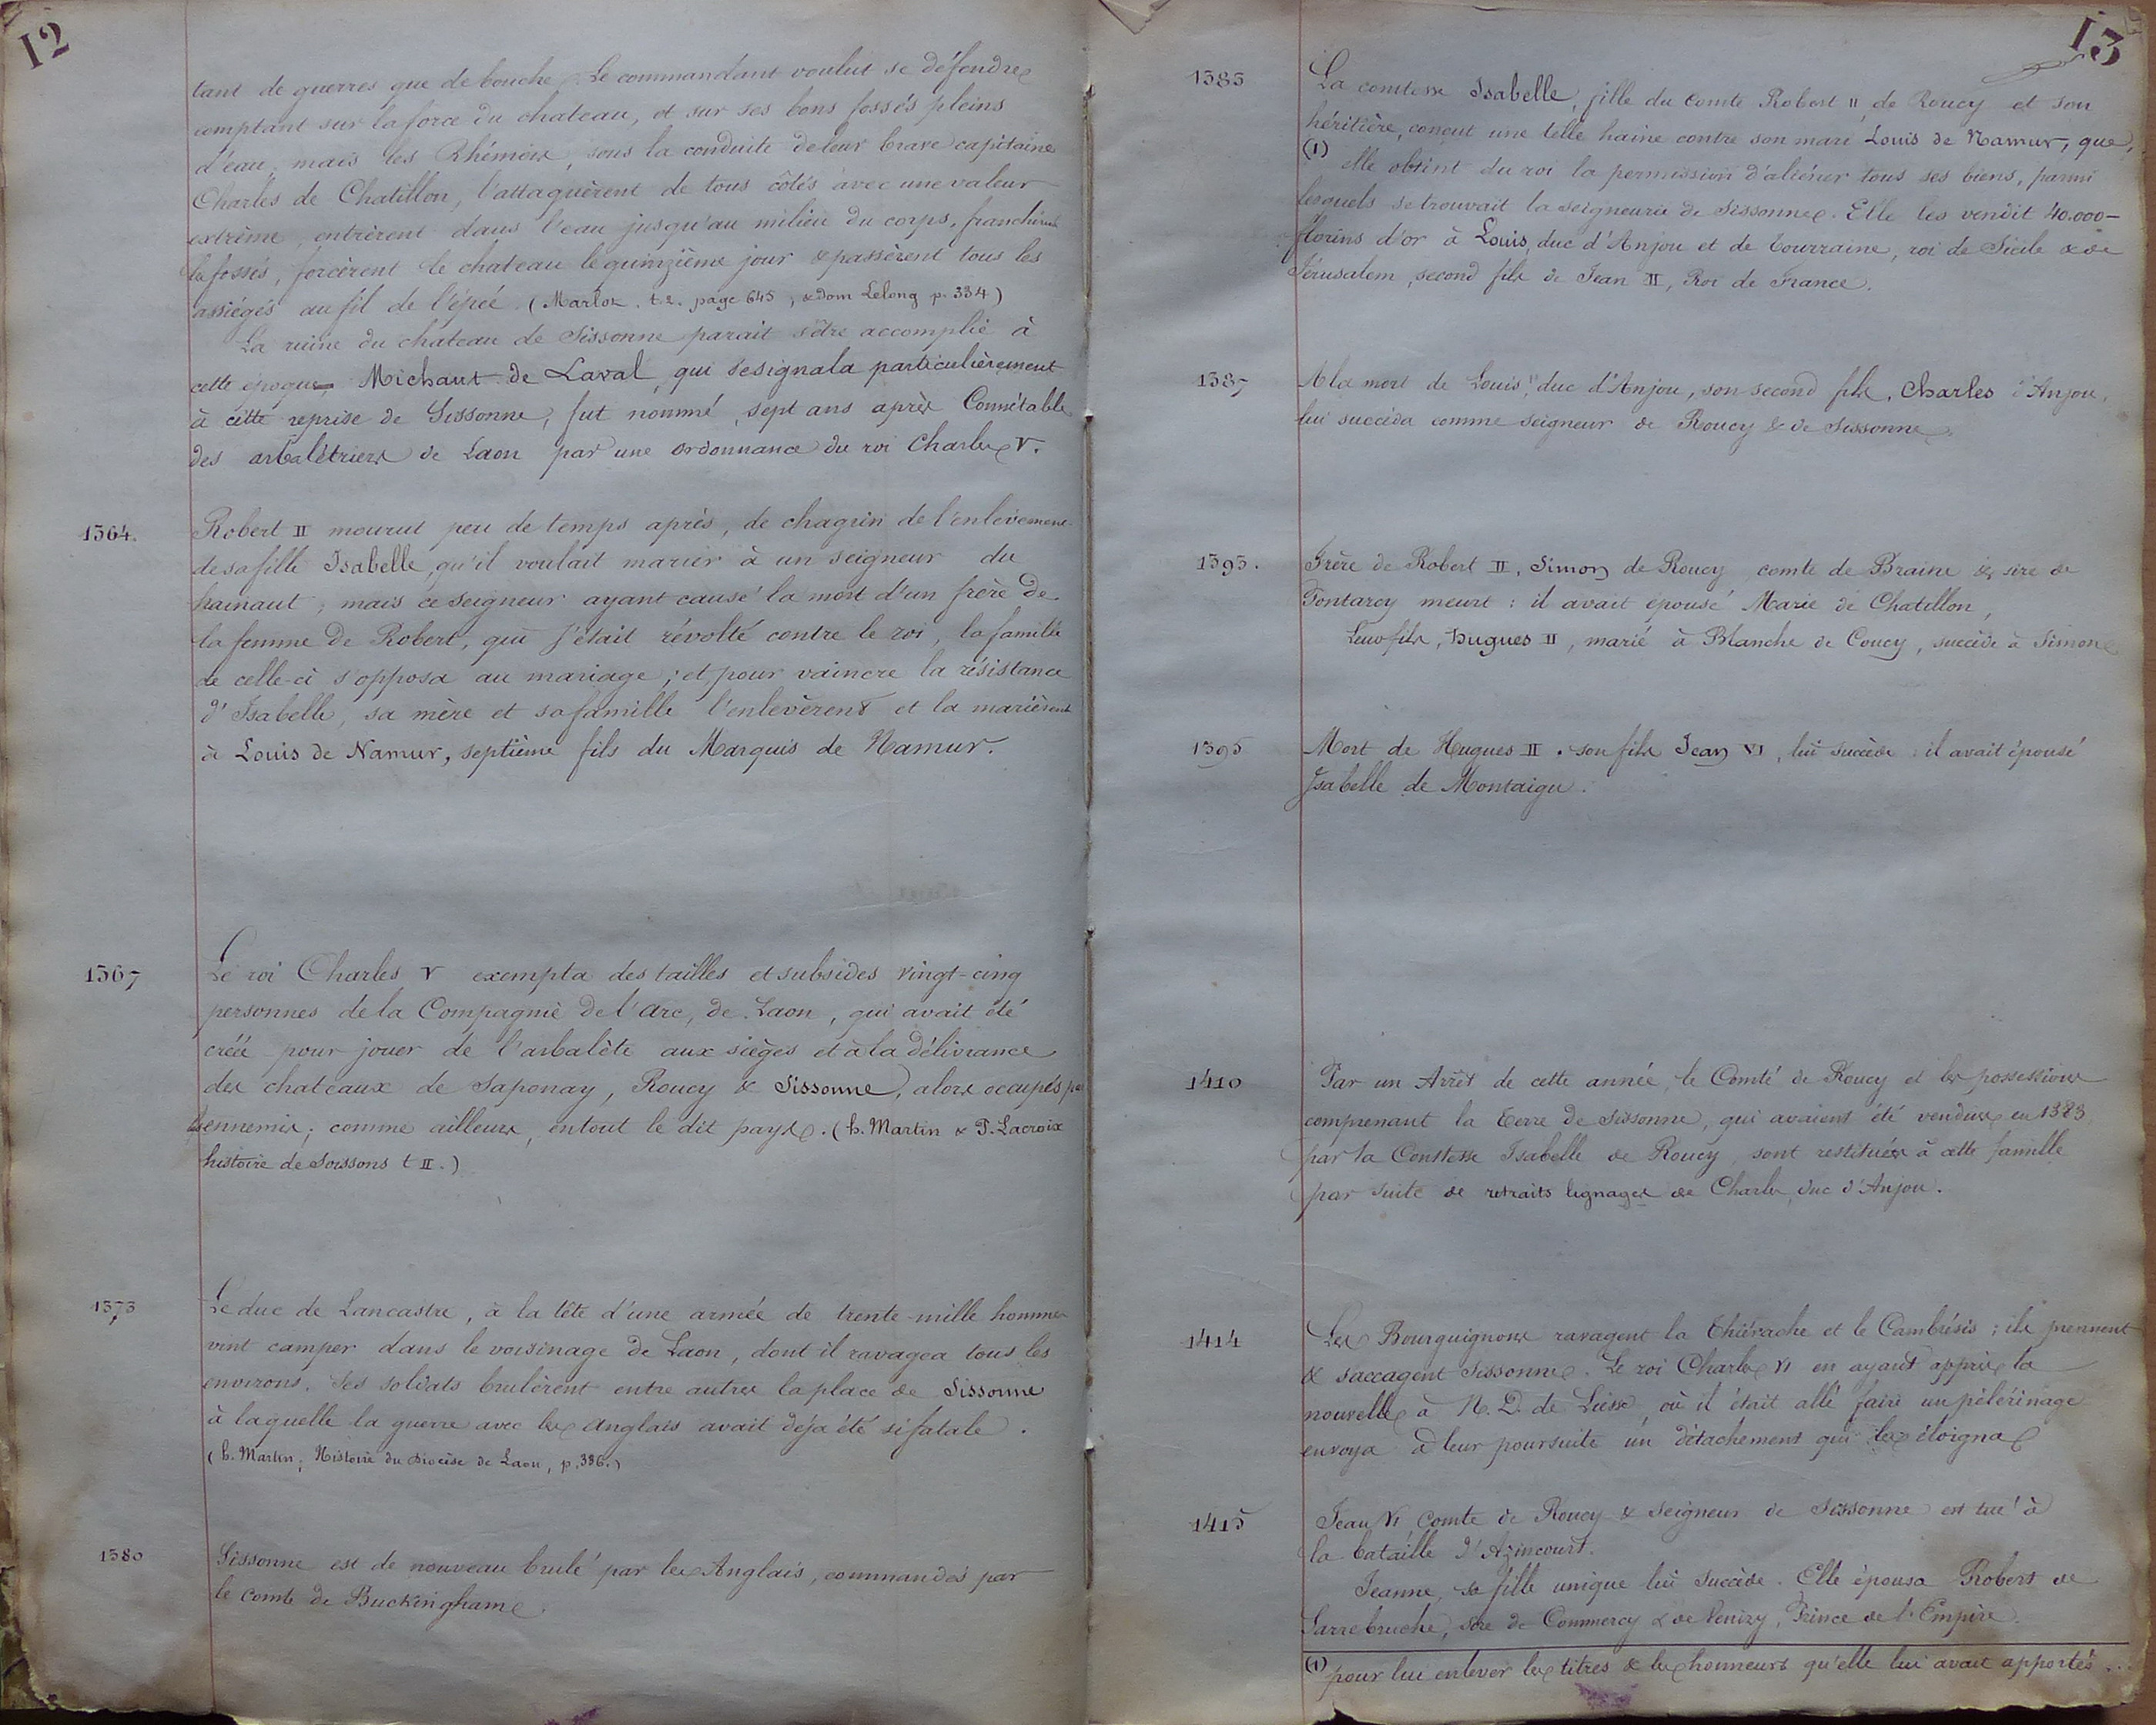 12
tant de guerres que de bouche. Le commandant voulut se défendre
comptant sur la force du chateau, et sur ses bons fossés pleins
d'eau; mais les Rhémois, sous la conduite de leur brave capitaine
Charles de Chatillon, l'attaquèrent de tous côtés avec une valeur
extrème, entrèrent dans l'eau jusqu'au milieu du corps, franchirent
les fossés, forcèrent le chateau le quinzième jour & passèrent tous les
assiégés au fil de l'épeé. (Marlot. t. 2. page 645, & dom Lelong p. 334)
La ruine du chateau de Sissonne parait s'être accomplie à
cette époque. Michaut de Laval, qui se signala particulièrement
à cette reprise de Sissonne, fut nommé, sept ans après Connétable
des arbalétriers de Laon par une ordonnance du roi Charles V.
1364.
Robert II mourut peu de temps après, de chagrin de l'enlèvement
de sa fille Isabelle, qu'il voulait marier à un seigneur du
hainaut; mais ce seigneur ayant causé la mort d'un frère de
la femme de Robert, qui s'était révolté contre le roi, la famille
de celle-ci s'opposa au mariage; et pour vaincre la résistance
d'Isabelle, sa mère et sa famille l'enlevèrent et la marièrent
à Louis de Namur, septième fils du Marquis de Namur.
1367
Le roi Charles V exempta des tailles et subsides vingt-cinq
personnes de la Compagnie de l'Arc, de Laon, qui avait été
créée pour jouer de l'arbalète aux sièges et à la délivrance
des chateaux de Saponay, Roucy & Sissonne, alors occupés par
les ennemis; comme ailleurs, en tout le dit pays. (h. Martin & P. Lacroix
histoire de Soissons t II.)
1373
Le duc de Lancastre, à la tête d'une armée de trente-mille hommes
vint camper dans le voisinage de Laon, dont il ravagea tous les
environs. Ses soldats brulèrent entre autres la place de Sissonne
à laquelle la guerre avec les Anglais avait déja été si fatale.
(h. Martin; Histoire du Diocèse de Laon, p. 336.)
1380
Sissonne est de nouveau brulé par les Anglais, commandés par
le comte de Buckingham.
13
1383
La comtesse Isabelle, fille du Comte Robert II, de Roucy et son
héritière, conçut une telle haine contre son mari Louis de Namur, que,
(1) elle obtint du roi la permission d'aliéner tous ses biens, parmi
lesquels se trouvait la seigneurie de Sissonne. Elle les vendit 40.000
florins d'or à Louis, duc d'Anjou et de Tourraine, roi de Sicile & de
Jérusalem, second fils de Jean II, Roi de France.
1387
A la mort de Louis, duc d'Anjou, son second fils, Charles d'Anjou,
lui succéda comme seigneur de Roucy & de Sissonne.
1393.
Frère de Robert II, Simon de Roucy comte de Braine & sire de
Pontarcy meurt: il avait épousé Marie de Chatillon,
Leur fils, Hugues II, marié à Blanche de Coucy, succède à Simon
1395
Mort de Hugues II. son fils Jean VI, lui succède: il avait épousé
Isabelle de Montaigu.
1410
Par un Arrêt de cette année, le Comté de Roucy et les possessions
comprenant la Terre de Sissonne, qui avaient été vendus en 1383
par la Comtesse Isabelle de Roucy, sont restituées à cette famille
par suite de retraits lignages de Charles, duc d'Anjou.
1414
Les Bourguignons ravagent la Thiérache et le Cambrésis; ils prennent
& saccagent Sissonne. Le roi Charles VI en ayant appris la
nouvelle à N. D. de Liesse, où il était allé faire un pélérinage
envoya à leur poursuite un détachement qui les éloigna
1415
Jean VI Comte de Roucy & Seigneur de Sissonne est tué à
la bataille d'Azincourt.
Jeanne, sa fille unique lui succède. Elle épousa Robert de
Sarrebruche, sire de Commercy & de Venizy, Prince de l'Empire.
(1) pour lui enlever les titres & les honneurs qu'elle lui avait apportés...